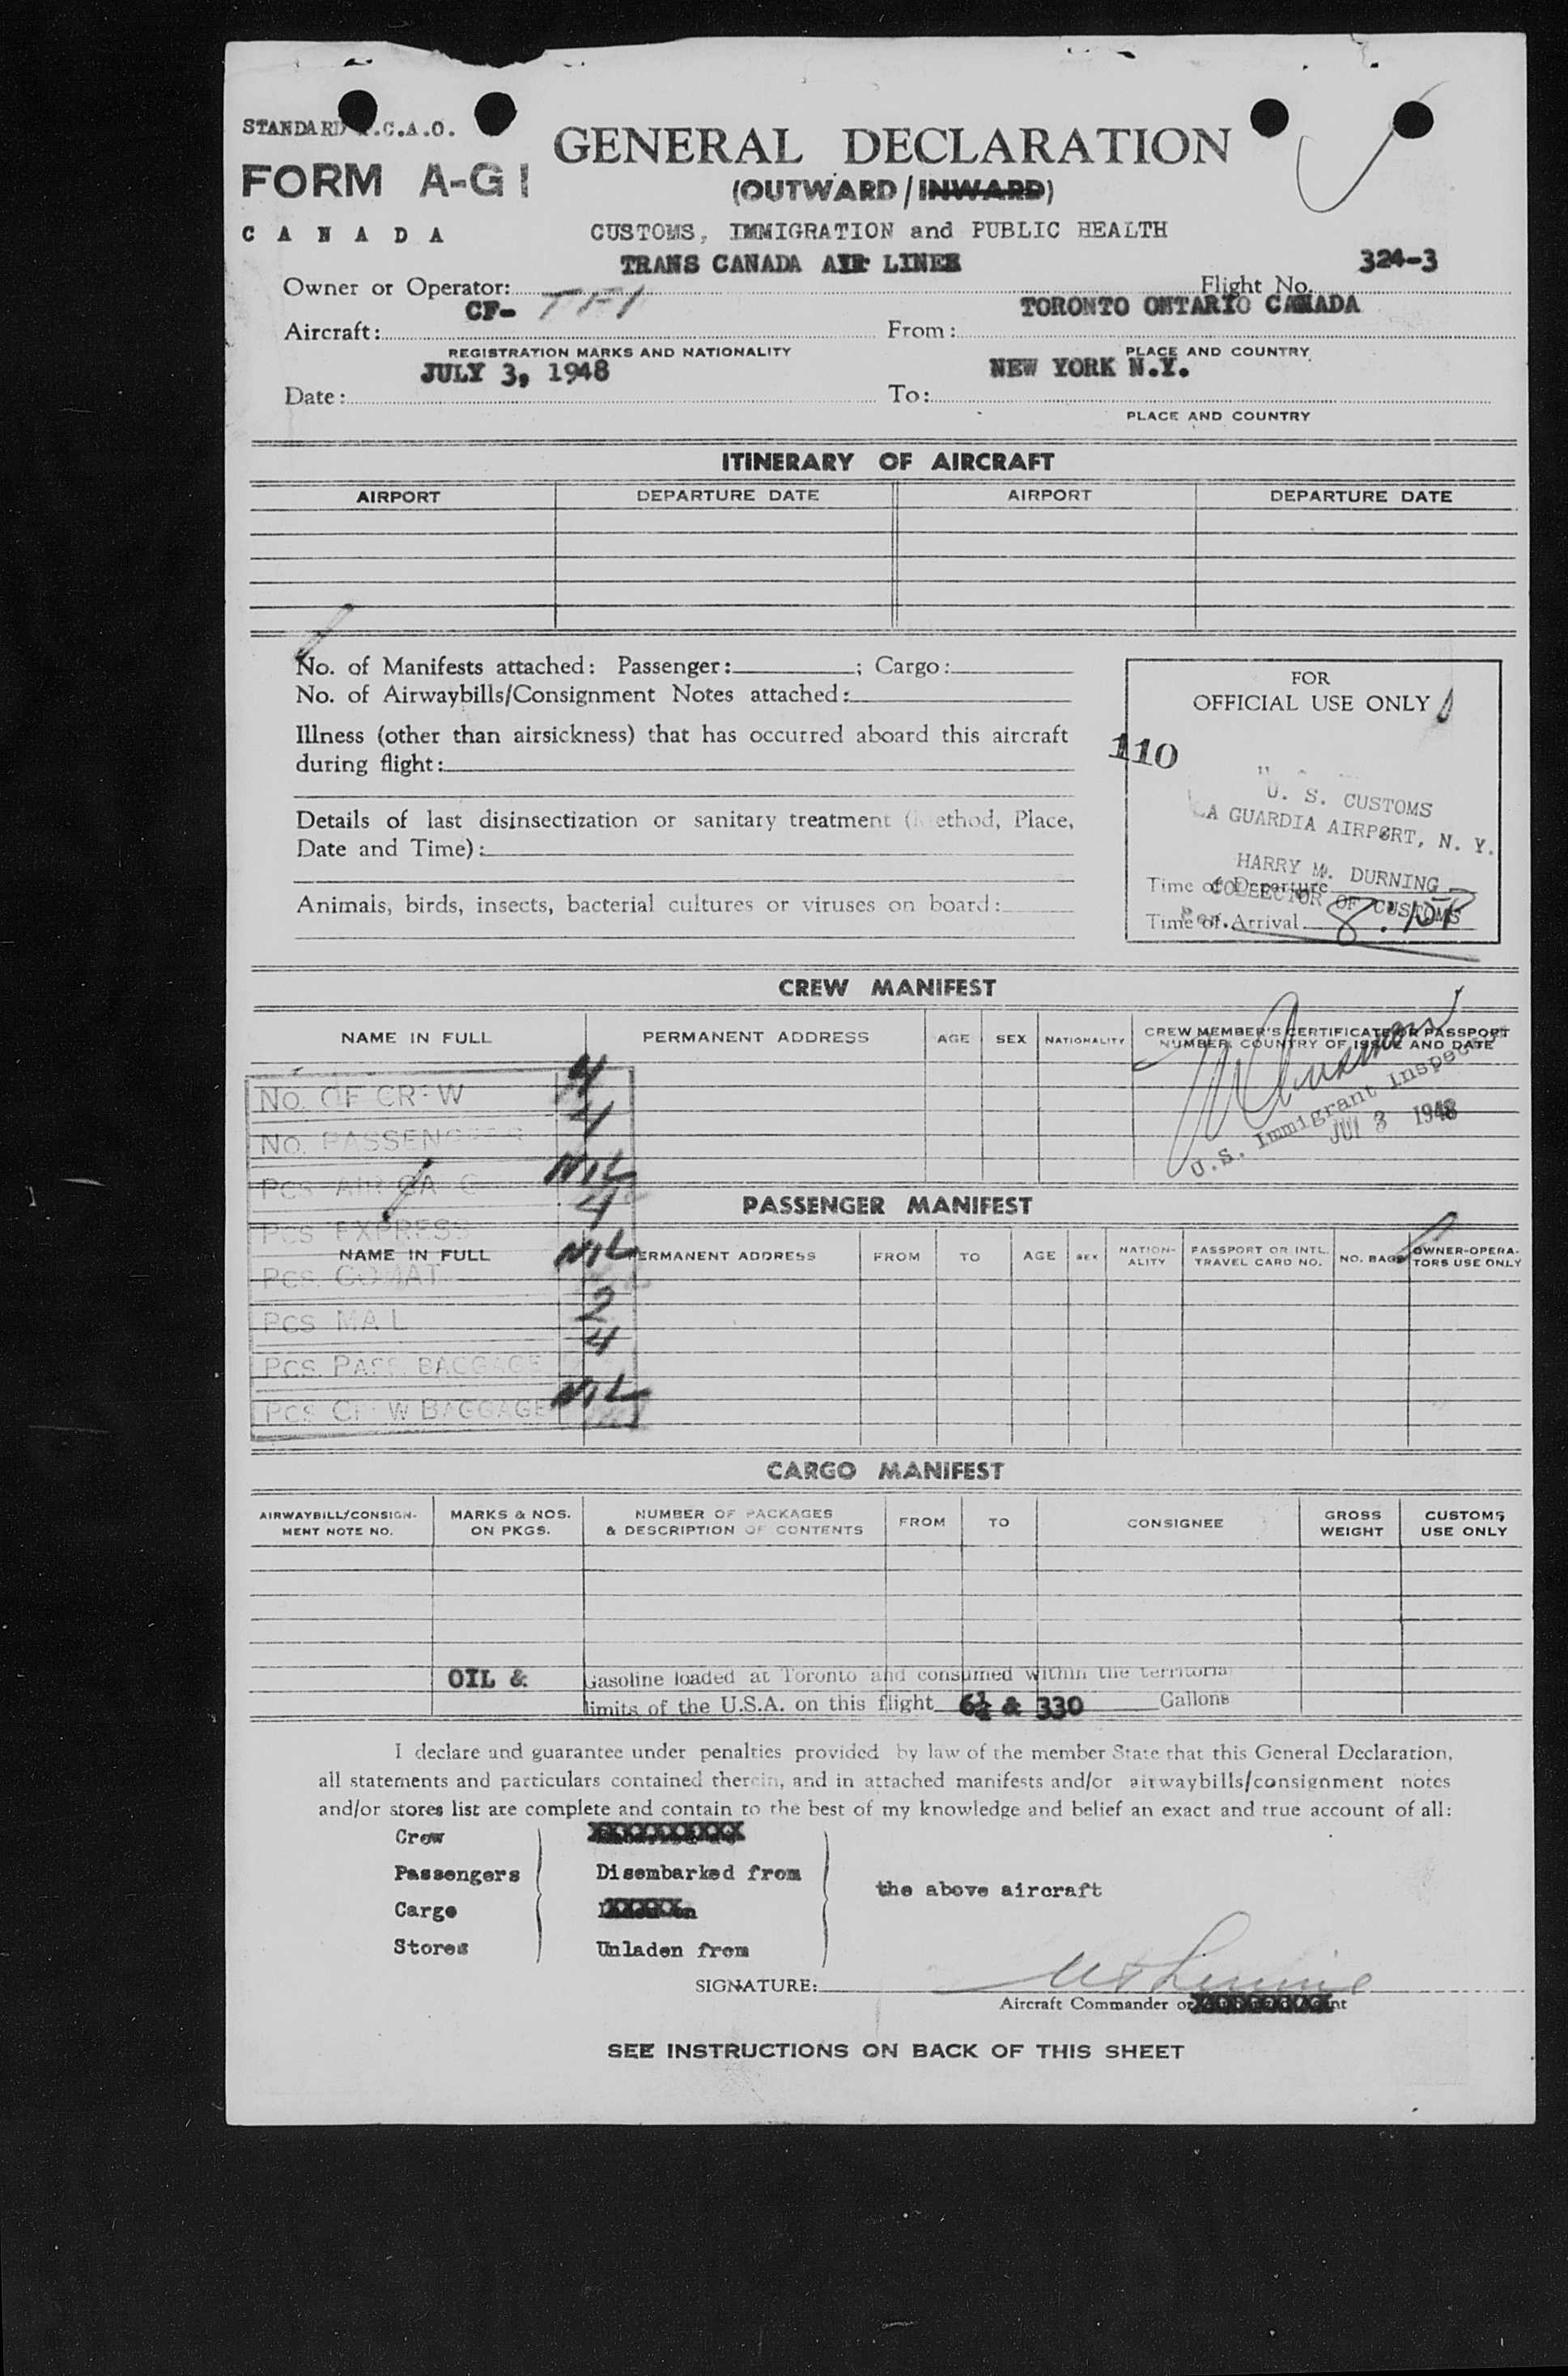 STANDARD I.C.A.O.
FORM A-G1
CANADA
GENERAL DECLARATION
(OUTWARD/INWARD)
CUSTOMS, IMMIGRATION and PUBLIC HEALTH
TRANS CANADA AIR LINES
324-3
Owner or Operator: Flight No.
CF- TORONTO ONTARIO CANADA
Aircraft: From:
REGISTRATION MARKS AND NATIONALITY PLACE AND COUNTRY
JULY 3, 1948 NEW YORK N.Y.
Date: To:
PLACE AND COUNTRY
ITINERARY OF AIRCRAFT
AIRPORT DEPARTURE DATE AIRPORT DEPARTURE DATE
No. of Manifests attached: Passenger: ; Cargo:
No. of Airwaybills/Consignment Notes attached:
Illness (other than airsickness) that has occurred aboard this aircraft
during flight:
Details of last disinsectization or sanitary treatment (Method, Place,
Date and Time):
Animals, birds, insects, bacterial cultures or viruses on board:
FOR
OFFICIAL USE ONLY
110
U. S. CUSTOMS
LA GUARDIA AIRPORT, N. Y.
HARRY M. DURNING
COLLECTOR OF CUSTOMS
Per.
Time of Departure
Time of Arrival 8:15P
CREW MANIFEST
NAME IN FULL PERMANENT ADDRESS AGE SEX NATIONALITY CREW MEMBER'S CERTIFICATE OR PASSPORT
NUMBER, COUNTRY OF ISSUE AND DATE
U.S. Immigrant Inspector
JUL 3 1948
No. OF CREW 4
No. PASSENGERS 4
Pcs AIR CARGO NIL
Pcs EXPRESS 4
Pcs. COMAT NIL
Pcs MAIL 2
Pcs. PASS. BAGGAGE 4
Pcs CREW BAGGAGE NIL
PASSENGER MANIFEST
NAME IN FULL PERMANENT ADDRESS FROM TO AGE SEX NATION-
ALITY PASSPORT OR INTL.
TRAVEL CARD NO. NO. BAGS OWNER-OPERA-
TORS USE ONLY
CARGO MANIFEST
AIRWAYBILL/CONSIGN-
MENT NOTE NO. MARKS & NOS.
ON PKGS. NUMBER OF PACKAGES
& DESCRIPTION OF CONTENTS FROM TO CONSIGNEE GROSS
WEIGHT CUSTOMS
USE ONLY
OIL & Gasoline loaded at Toronto and consumed within the territorial
limits of the U.S.A. on this flight 6¼ & 330 Gallons
I declare and guarantee under penalties provided by law of the member State that this General Declaration,
all statements and particulars contained therein, and in attached manifests and/or airwaybills/consignment notes
and/or stores list are complete and contain to the best of my knowledge and belief an exact and true account of all:
Crew
Passengers Disembarked from
the above aircraft
Cargo
Stores Unladen from
SIGNATURE:
Aircraft Commander or
SEE INSTRUCTIONS ON BACK OF THIS SHEET